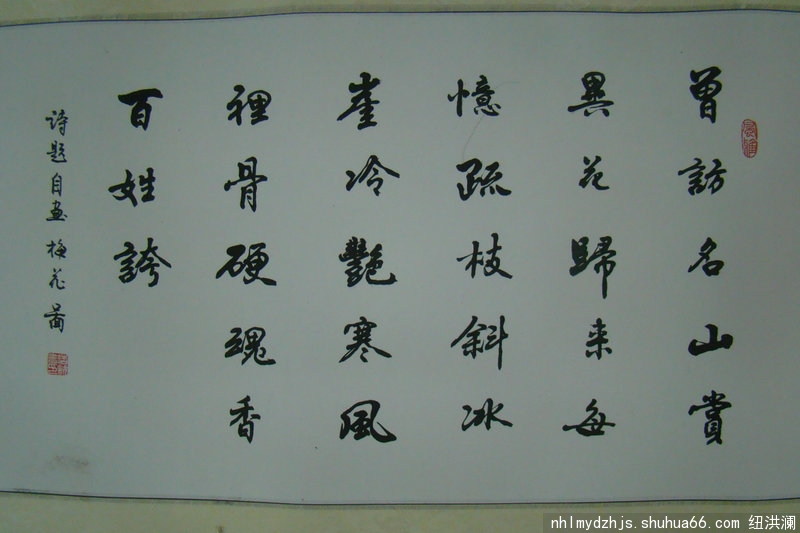 曾訪名山賞
異花歸来每
憶疏枝斜冰
崖冷艷寒風
裡骨硬魂香
百姓誇
诗题自画梅花图
nhlmydzhjs.shuhua66.com 纽洪澜